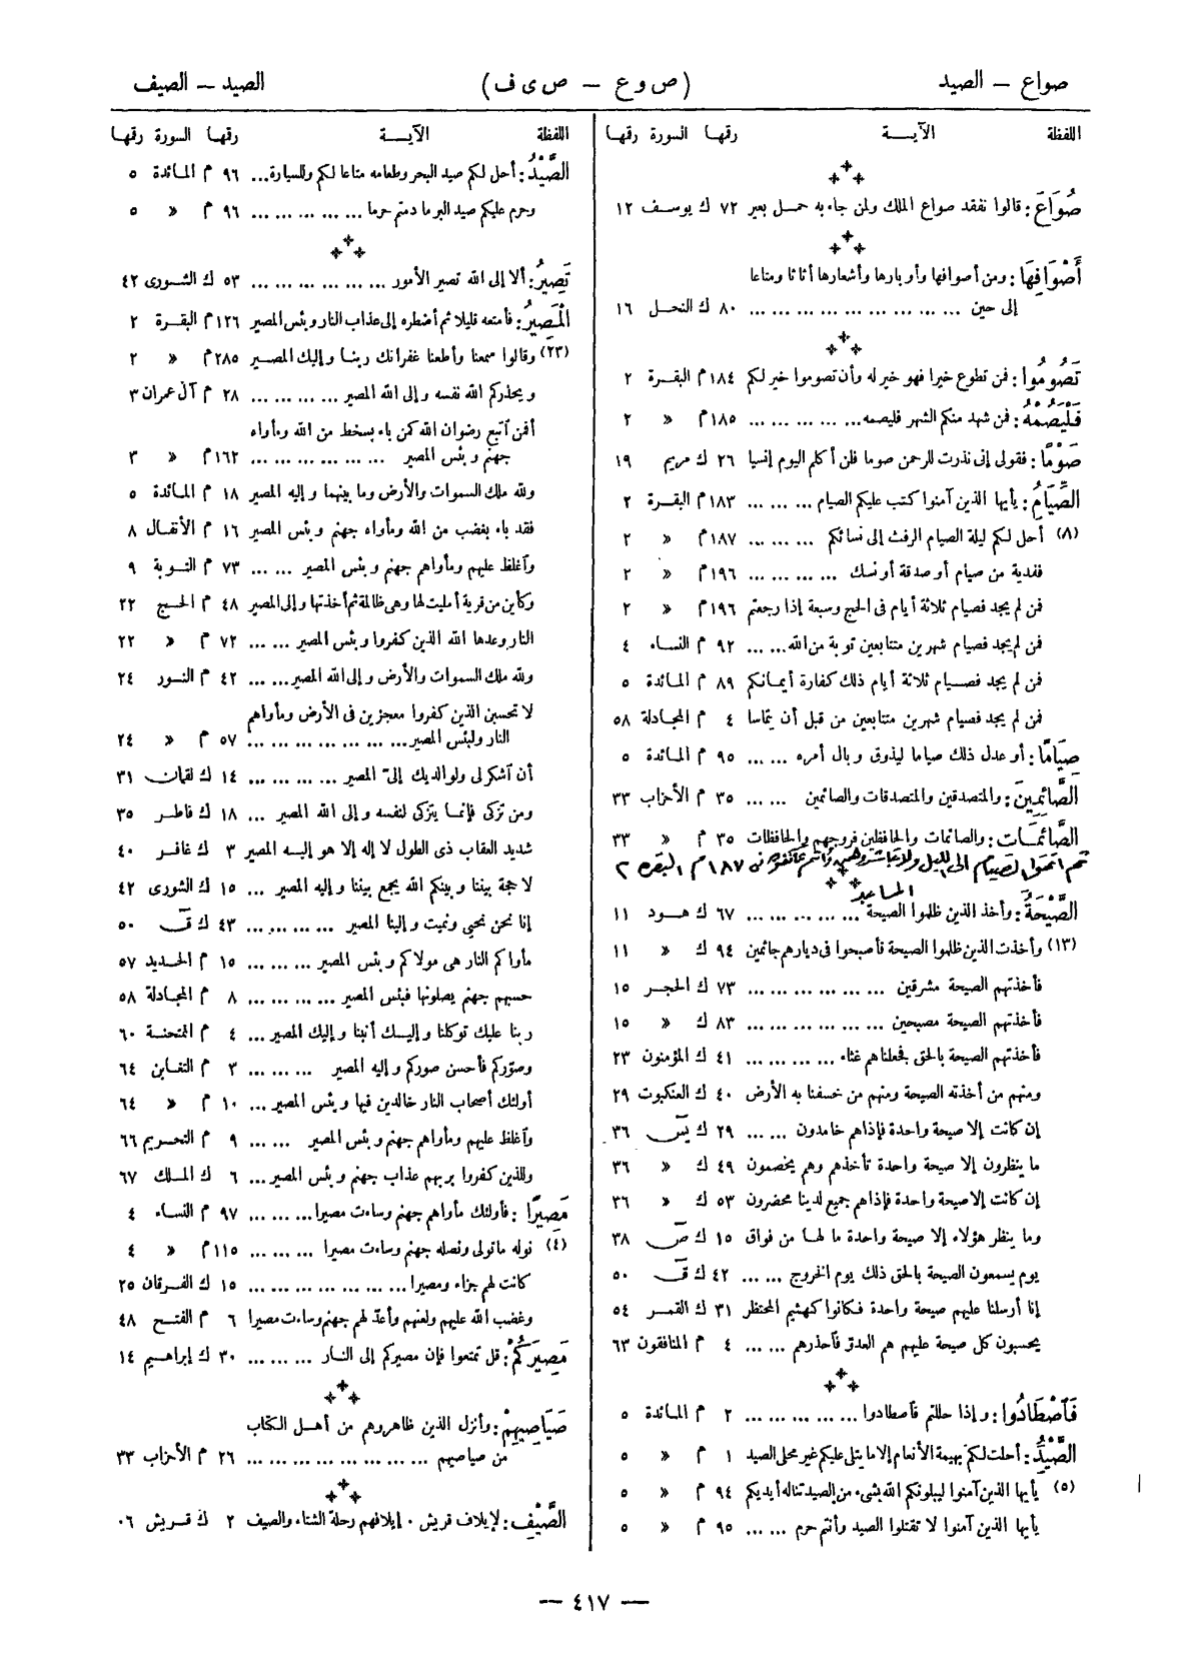 صواع – الصيد
(ص و ع – ص ى ف)
الصيد – الصيف
اللفظة الآيـــة رقمها السورة رقمها
صُوَاعَ : قالوا نفقد صواع الملك ولمن جاء به حمـل بعير ٧٢ ك يوسـف ١٢
أَصْوَافِهَا : ومن أصوافها وأوبارها وأشعارها أثاثا ومتاعا
إلى حين ... ... ... ... ... ... ... ... ... ٨٠ ك النحـل ١٦
تَصُومُوا : فمن تطوع خيرا فهو خير له وأن تصوموا خير لكم ١٨٤ م البقـرة ٢
فَلْيَصُمْهُ : فمن شهد منكم الشهر فليصمه... ... ... ... ... ١٨٥ م » ٢
صَوْمًا : فقولى إنى نذرت للرحمن صوما فلن أكلم اليوم إنسيا ٢٦ ك مريم ١٩
الصِّيَامُ : يأيها الذين آمنوا كتب عليكم الصيام ... ... ... ١٨٣ م البقـرة ٢
(٨) أحل لكم ليلة الصيام الرفث إلى نسائكم ... ... ... ١٨٧ م » ٢
ففدية من صيام أو صدقة أو نسك ... ... ... ... ١٩٦ م » ٢
فمن لم يجد فصيام ثلاثة أيام فى الحج وسبعة إذا رجعتم ١٩٦ م » ٢
فمن لم يجد فصيام شهرين متتابعين توبة من الله... ... ٩٢ م النساء ٤
فمن لم يجد فصيام ثلاثة أيام ذلك كفارة أيمانكم ٨٩ م المائدة ٥
فمن لم يجد فصيام شهرين متتابعين من قبل أن يتماسا ٤ م المجادلة ٥٨
صِيَامًا : أو عدل ذلك صياما ليذوق وبال أمره ... ... ٩٥ م المائدة ٥
الصَّائِمِينَ : والمتصدقين والمتصدقات والصائمين ... ... ٣٥ م الأحزاب ٣٣
الصَّائِمَـات : والصائمات والحافظين فروجهم والحافظات ٣٥ م » ٣٣
ثم اتموا الصيام الى الليل ولا تباشروهن وانتم عاكفون فى ١٨٧ م البقره ٢
المساجد
الصَّيْحَةُ : وأخذ الذين ظلموا الصيحة ... ... ... ... ... ٦٧ ك هـود ١١
(١٣) وأخذت الذين ظلموا الصيحة فأصبحوا فى ديارهم جاثمين ٩٤ ك » ١١
فأخذتهم الصيحة مشرقين ... ... ... ... ... ... ٧٣ ك الحجـر ١٥
فأخذتهم الصيحة مصبحين ... ... ... ... ... ... ٨٣ ك » ١٥
فأخذتهم الصيحة بالحق فجعلناهم غثاء ... ... ... ... ٤١ ك المؤمنون ٢٣
ومنهم من أخذته الصيحة ومنهم من خسفنا به الأرض ٤٠ ك العنكبوت ٢٩
إن كانت إلا صيحة واحدة فإذاهم خامدون ... ... ٢٩ ك يسٓ ٣٦
ما ينظرون إلا صيحة واحدة تأخذهم وهم يخصمون ٤٩ ك » ٣٦
إن كانت إلا صيحة واحدة فإذاهم جميع لدينا محضرون ٥٣ ك » ٣٦
وما ينظر هؤلاء إلا صيحة واحدة ما لها من فواق ١٥ ك صٓ ٣٨
يوم يسمعون الصيحة بالحق ذلك يوم الخروج ... ... ٤٢ ك قٓ ٥٠
إنا أرسلنا عليهم صيحة واحدة فكانوا كهشيم المحتظر ٣١ ك القمـر ٥٤
يحسبون كل صيحة عليهم هم العدو فاحذرهم ... ... ٤ م المنافقون ٦٣
فَاصْطَادُوا : وإذا حللتم فاصطادوا ... ... ... ... ... ٢ م المائدة ٥
الصَّيْدِ : أحلت لكم بهيمة الأنعام إلا ما يتلى عليكم غير محلى الصيد ١ م » ٥
(٥) يأيها الذين آمنوا ليبلونكم الله بشىء من الصيد تناله أيديكم ٩٤ م » ٥
يأيها الذين آمنوا لا تقتلوا الصيد وأنتم حرم ... ... ٩٥ م » ٥
اللفظة الآيـــة رقمها السورة رقمها
الصَّيْدُ : أحل لكم صيد البحر وطعامه متاعا لكم وللسيارة... ٩٦ م المائدة ٥
وحرم عليكم صيد البر ما دمتم حرما ... ... ... ... ٩٦ م » ٥
تَصِيرُ : ألا إلى الله تصير الأمور ... ... ... ... ... ... ٥٣ ك الشورى ٤٢
الْمَصِيرُ : فأمتعه قليلا ثم أضطره إلى عذاب النار وبئس المصير ١٢٦ م البقـرة ٢
(٢٣) وقالوا سمعنا وأطعنا غفرانك ربنا وإليك المصـير ٢٨٥ م » ٢
ويحذركم الله نفسه وإلى الله المصير ... ... ... ... ٢٨ م آل عمران ٣
أفمن اتبع رضوان الله كمن باء بسخط من الله ومأواه
جهنم وبئس المصير ... ... ... ... ... ... ١٦٢ م » ٣
ولله ملك السموات والأرض وما بينهما وإليه المصير ١٨ م المائدة ٥
فقد باء بغضب من الله ومأواه جهنم وبئس المصير ١٦ م الأنفـال ٨
واغلظ عليهم ومأواهم جهنم وبئس المصير ... ... ٧٣ م التـوبة ٩
وكأين من قرية أمليت لها وهى ظالمة ثم أخذتها وإلى المصير ٤٨ م الحـج ٢٢
النار وعدها الله الذين كفروا وبئس المصير ... ... ٧٢ م » ٢٢
ولله ملك السموات والأرض وإلى الله المصير... ... ٤٢ م النـور ٢٤
لا تحسبن الذين كفروا معجزين فى الأرض ومأواهم
النار ولبئس المصير... ... ... ... ... ... ... ٥٧ م » ٢٤
أن اشكر لى ولوالديك إلىّ المصير ... ... ... ... ١٤ ك لقمـان ٣١
ومن تزكى فإنما يتزكى لنفسه وإلى الله المصير ... ١٨ ك فاطـر ٣٥
شديد العقاب ذى الطول لا إله إلا هو إليـه المصير ٣ ك غافـر ٤٠
لا حجة بيننا وبينكم الله يجمع بيننا وإليه المصير ... ١٥ ك الشورى ٤٢
إنا نحن نحيى ونميت وإلينا المصير ... ... ... ... ٤٣ ك قٓ ٥٠
مأواكم النار هى مولاكم وبئس المصير ... ... ... ١٥ م الحديد ٥٧
حسبهم جهنم يصلونها فبئس المصير ... ... ... ... ٨ م المجادلة ٥٨
ربنا عليك توكلنا وإليـك أنبنا وإليك المصير ... ٤ م الممتحنة ٦٠
وصوّركم فأحسن صوركم وإليه المصير ... ... ... ٣ م التغـابن ٦٤
أولئك أصحاب النار خالدين فيها وبئس المصير ... ١٠ م » ٦٤
واغلظ عليهم ومأواهم جهنم وبئس المصير ... ... ٩ م التحريم ٦٦
وللذين كفروا بربهم عذاب جهنم وبئس المصير ... ٦ ك المـلك ٦٧
مَصِيرًا : فأولئك مأواهم جهنم وساءت مصيرا... ... ... ٩٧ م النساء ٤
(٤) نوله ما تولى ونصله جهنم وساءت مصيرا ... ... ... ١١٥ م » ٤
كانت لهم جزاء ومصيرا... ... ... ... ... ... ... ١٥ ك الفـرقان ٢٥
وغضب الله عليهم ولعنهم وأعدّ لهم جهنم وساءت مصيرا ٦ م الفتـح ٤٨
مَصِيرَكُمْ : قل تمتعوا فإن مصيركم إلى النـار ... ... ... ٣٠ ك إبراهـيم ١٤
صَيَاصِيهِمْ : وأنزل الذين ظاهروهم من أهـل الكتاب
من صياصيهم ... ... ... ... ... ... ... ... ٢٦ م الأحزاب ٣٣
الصَّيْفِ : لإيلاف قريش ٠ إيلافهم رحلة الشتاء والصيف ٢ ك قـريش ٠٦
— ٤١٧ —